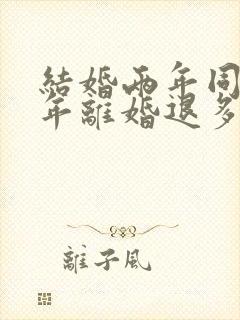 結婚兩年同
年離婚退多
離子風